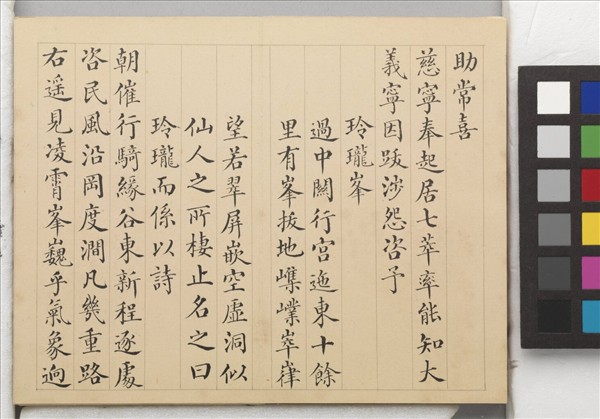 助常喜
慈寧奉起居七萃率能知大
義寧因跋涉怨咨予
玲瓏峯
過中關行宫迤東十餘
里有峯拔地嶫崒嵂
望若翠屏嵌空虛洞似
仙人之所棲止名之曰
玲瓏而係以詩
朝催行騎緣谷東新程逐處
咨民風沿岡度澗凡幾重路
右遥見凌霄峯巍乎氣象逈